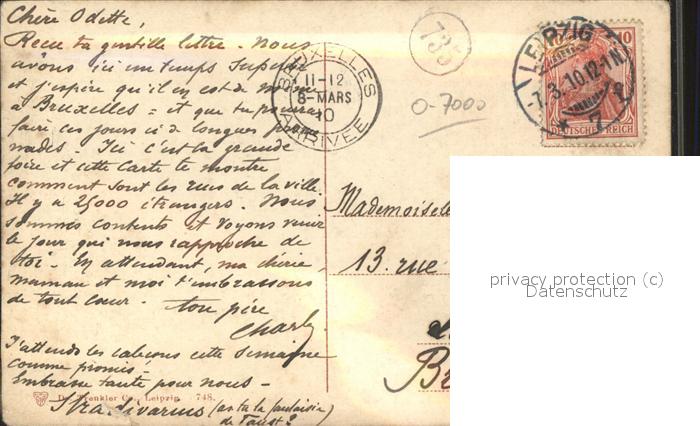 Chère Odette,
Reçu ta gentille lettre. Nous
avons ici un temps superbe
et j'espère qu'il en est de même
à Bruxelles = et que tu pourras
faire ces jours ci de longues prome
nades. Ici c'est la grande
foire et cette carte te montre
comment sont les rues de la ville.
Il y a 25000 étrangers. Nous
sommes contents et voyons venir
le jour qui nous rapproche de
toi. En attendant, ma chérie,
maman et moi t'embrassons
de tout cœur. ton père
Charly
J'attends les caleçons cette semaine
comme promis.
Embrasse tante pour nous -
Stradivarius (as tu la fantaisie
de Faust?
Dr. Trenkler Co., Leipzig. 748.
735
BRUXELLES
11-12
8-MARS
10
ARRIVÉE
0-7000
LEIPZIG
-7.3.10.12-1N.
7
10
DEUTSCHES REICH
Mademoiselle
13. rue
Br
privacy protection (c)
Datenschutz